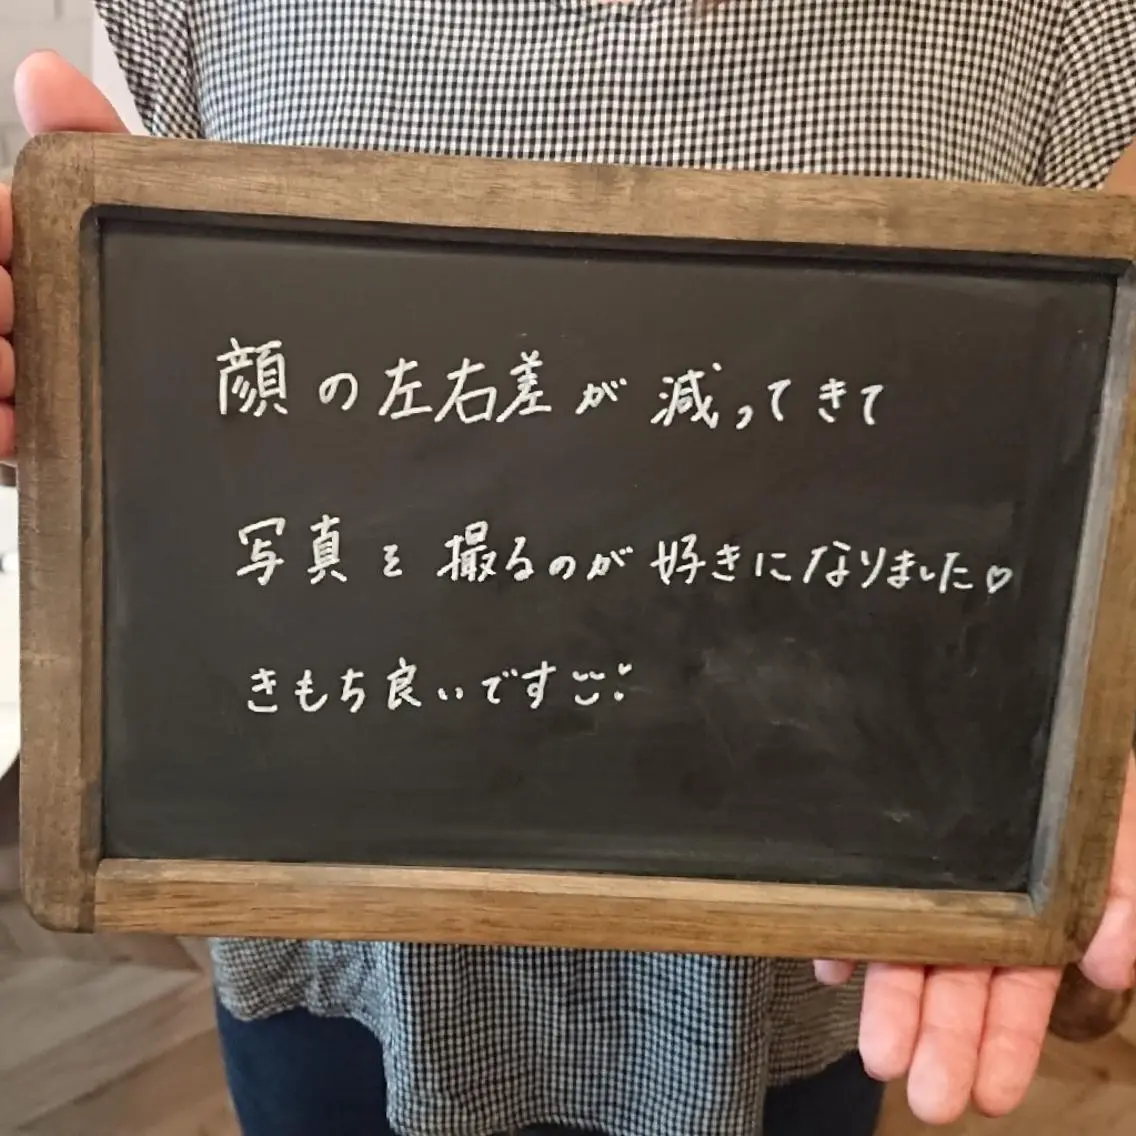 顔の左右差が減ってきて
写真を撮るのが好きになりました♡
きもち良いです